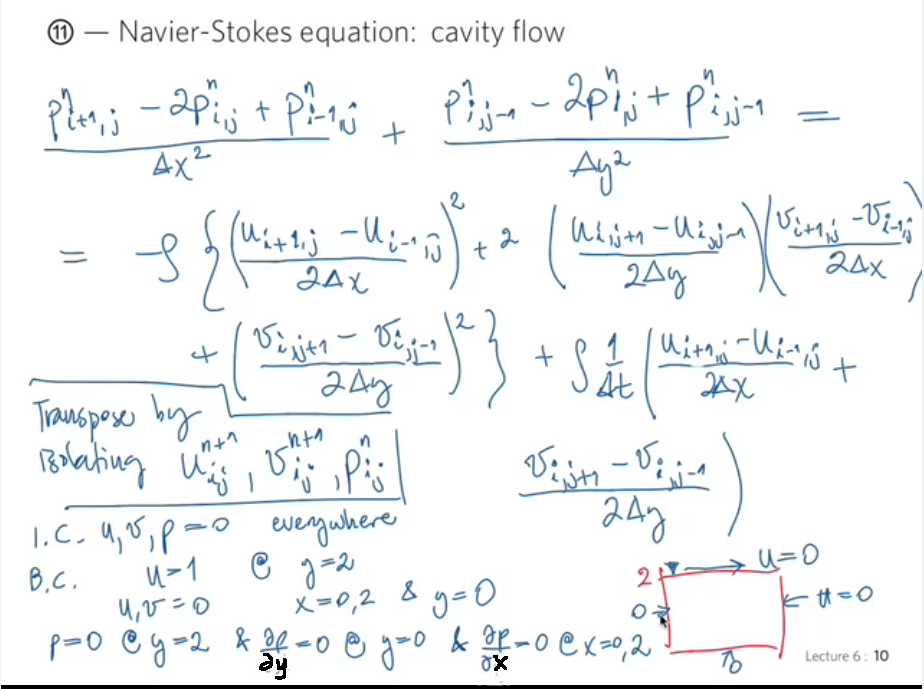 ⑪ — Navier-Stokes equation: cavity flow
(p^n_{i+1,j} - 2p^n_{i,j} + p^n_{i-1,j}) / Δx² + (p^n_{i,j-1} - 2p^n_{i,j} + p^n_{i,j-1}) / Δy² =
= -ρ { ((u_{i+1,j} - u_{i-1,j}) / 2Δx)² + 2 ((u_{i,j+1} - u_{i,j-1}) / 2Δy) ((v_{i+1,j} - v_{i-1,j}) / 2Δx)
+ ((v_{i,j+1} - v_{i,j-1}) / 2Δy)² } + ρ 1/Δt ( (u_{i+1,j} - u_{i-1,j}) / 2Δx +
(v_{i,j+1} - v_{i,j-1}) / 2Δy )
Transpose by
isolating u^{n+1}_{ij}, v^{n+1}_{ij}, p^n_{ij}
I.C. u, v, p = 0 everywhere
B.C. u=1 @ y=2
u, v = 0 x=0,2 & y=0
p=0 @ y=2 & ∂p/∂y = 0 @ y=0 & ∂p/∂x = 0 @ x=0,2
2 → u=0
0 → ← u=0
↑0
Lecture 6 : 10